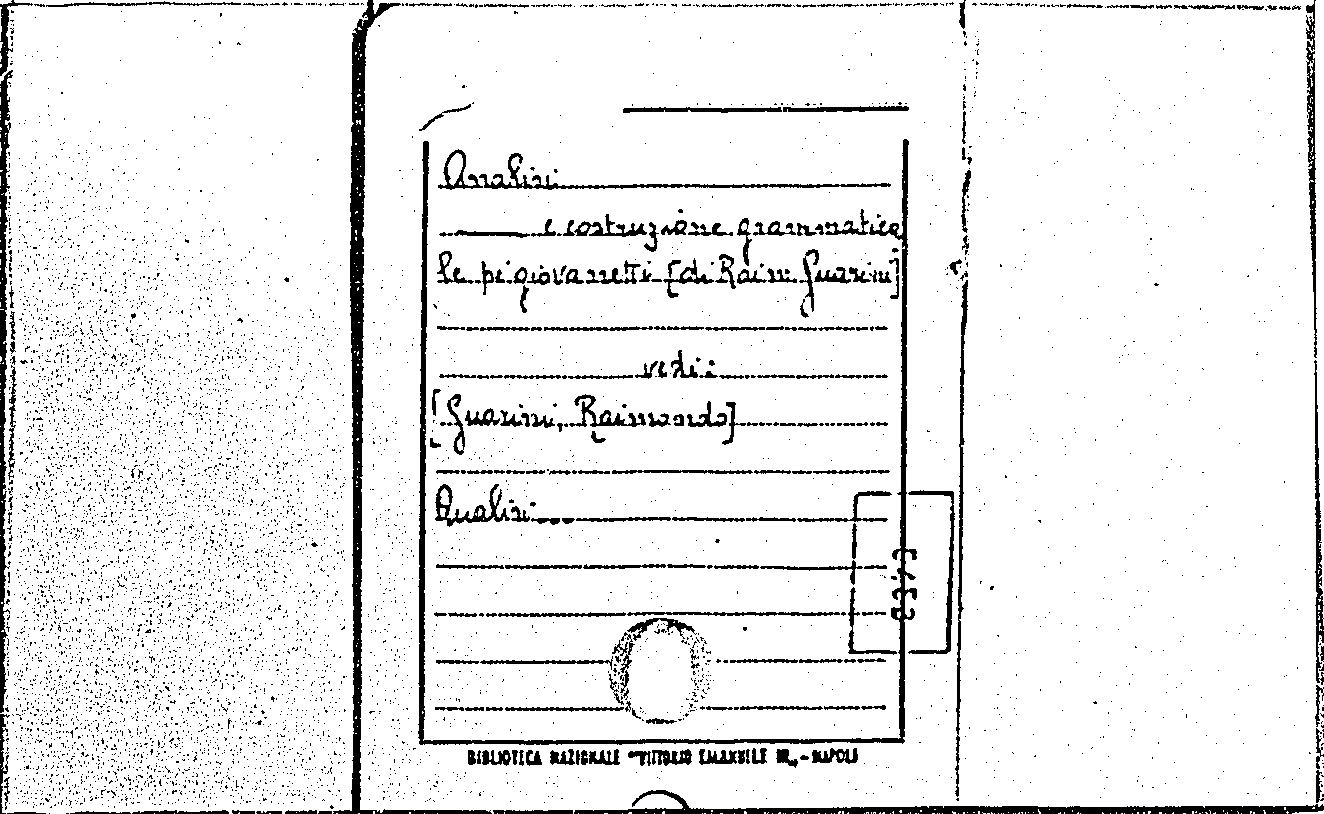 Analisi
——— e costruzione grammatica
le pei giovanetti [di Raim. Guarini]
vedi:
[Guarini, Raimondo]
Analisi...
BIBLIOTECA NAZIONALE "VITTORIO EMANUELE III„ - NAPOLI